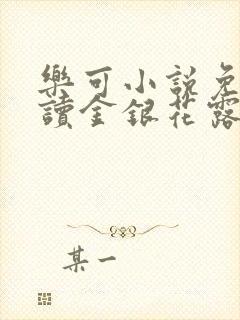 樂可小說免
讀金銀花露
某一